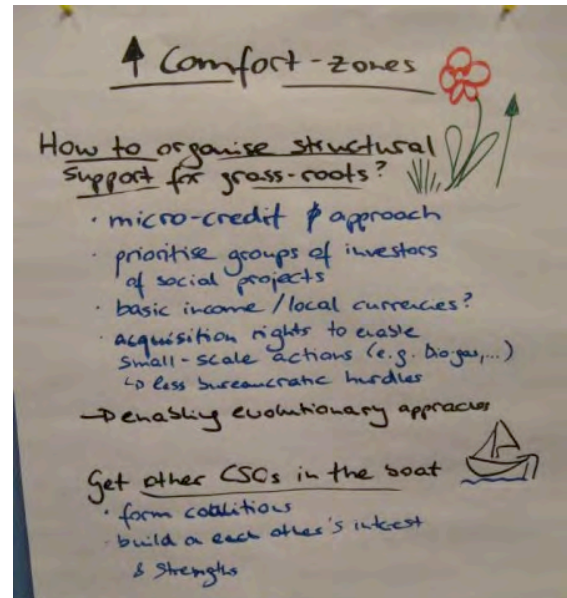 ↑ Comfort-zones
How to organise structural
support for grass-roots?
· micro-credit approach
· prioritise groups of investors
of social projects
· basic income / local currencies?
· acquisition rights to enable
small-scale actions (e.g. biogas,...)
↳ less bureaucratic hurdles
→ enabling evolutionary
Get other CSOs in the boat
· form coalitions
· build on each other's interest
& strengths